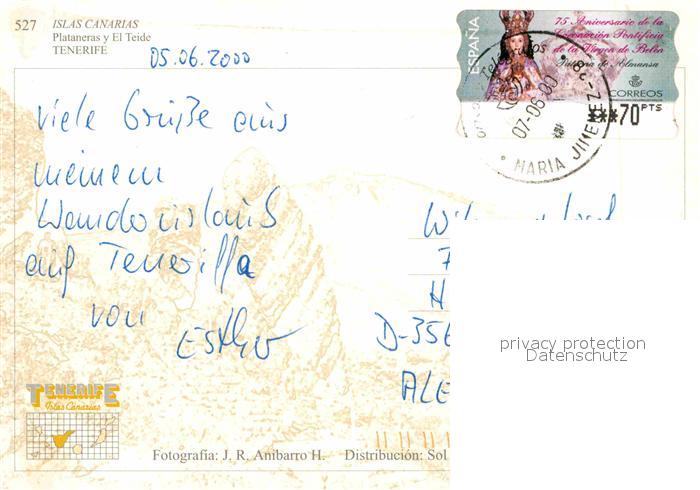 527 ISLAS CANARIAS
Plataneras y El Teide
TENERIFE
05.06.2000
Viele Grüße aus
meinem
Wanderurlaub
auf Teneriffa
von
Esther
ESPAÑA
75 Aniversario de la
Coronación Pontificia
de la Virgen de Belén
Patrona de Almansa
CORREOS
***70 PTS
07-06-00
MARIA JIMENEZ
H
D-356
ALE
privacy protection
Datenschutz
TENERIFE
Islas Canarias
Fotografía: J. R. Anibarro H. Distribución: Sol